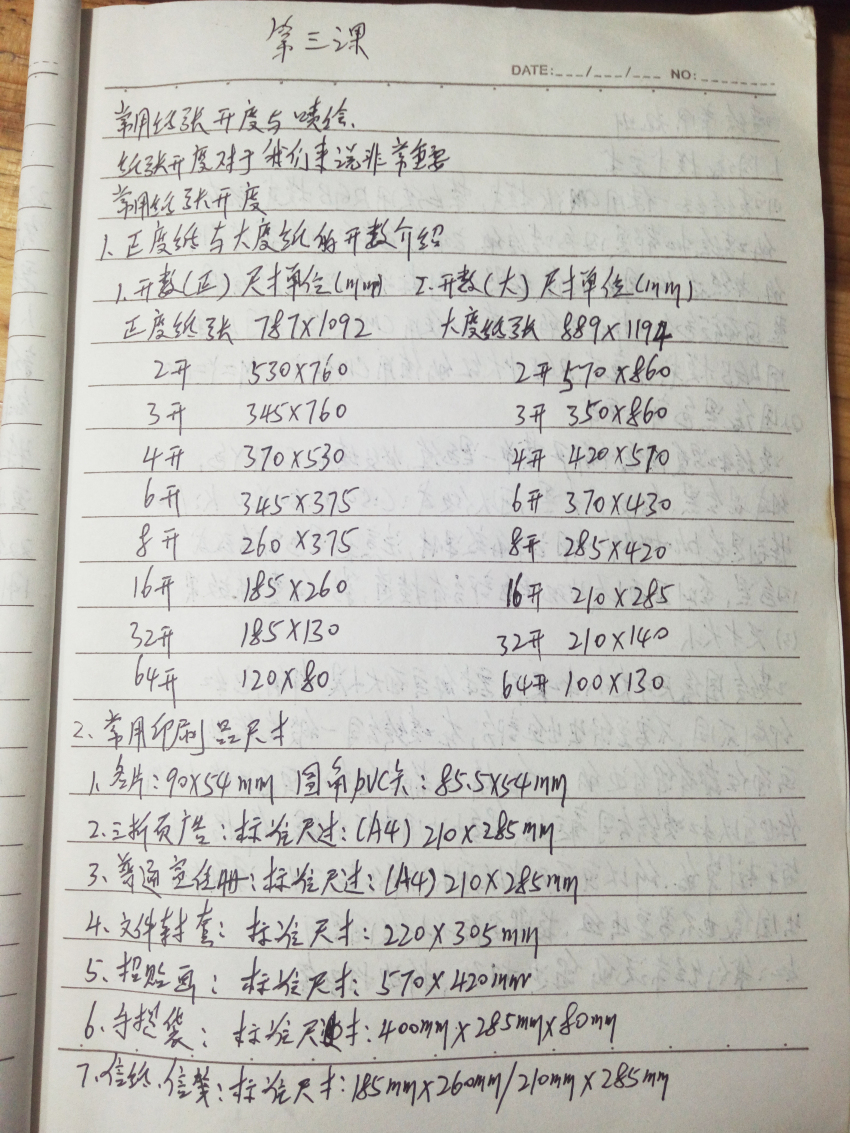 第三课
DATE:___/___/___ NO:________
常用纸张开度与喷绘.
纸张开度对于我们来说非常重要
常用纸张开度
1、正度纸与大度纸的开数介绍
1.开数(正) 尺寸单位(mm) 2.开数(大) 尺寸单位(mm)
正度纸张 787×1092 大度纸张 889×1194
2开 530×760 2开 570×860
3开 345×760 3开 350×860
4开 370×530 4开 420×570
6开 345×375 6开 370×430
8开 260×375 8开 285×420
16开 185×260 16开 210×285
32开 185×130 32开 210×140
64开 120×80 64开 100×130
2、常用印刷品尺寸
1、名片:90×54mm 圆角PVC卡:85.5×54mm
2、三折页广告:标准尺过:(A4) 210×285mm
3、普通宣传册:标准尺过:(A4) 210×285mm
4、文件封套:标准尺寸:220×305mm
5、招贴画:标准尺寸:570×420mm
6、手提袋:标准尺寸:400mm×285mm×80mm
7、信纸.信笺:标准尺寸:185mm×260mm/210mm×285mm